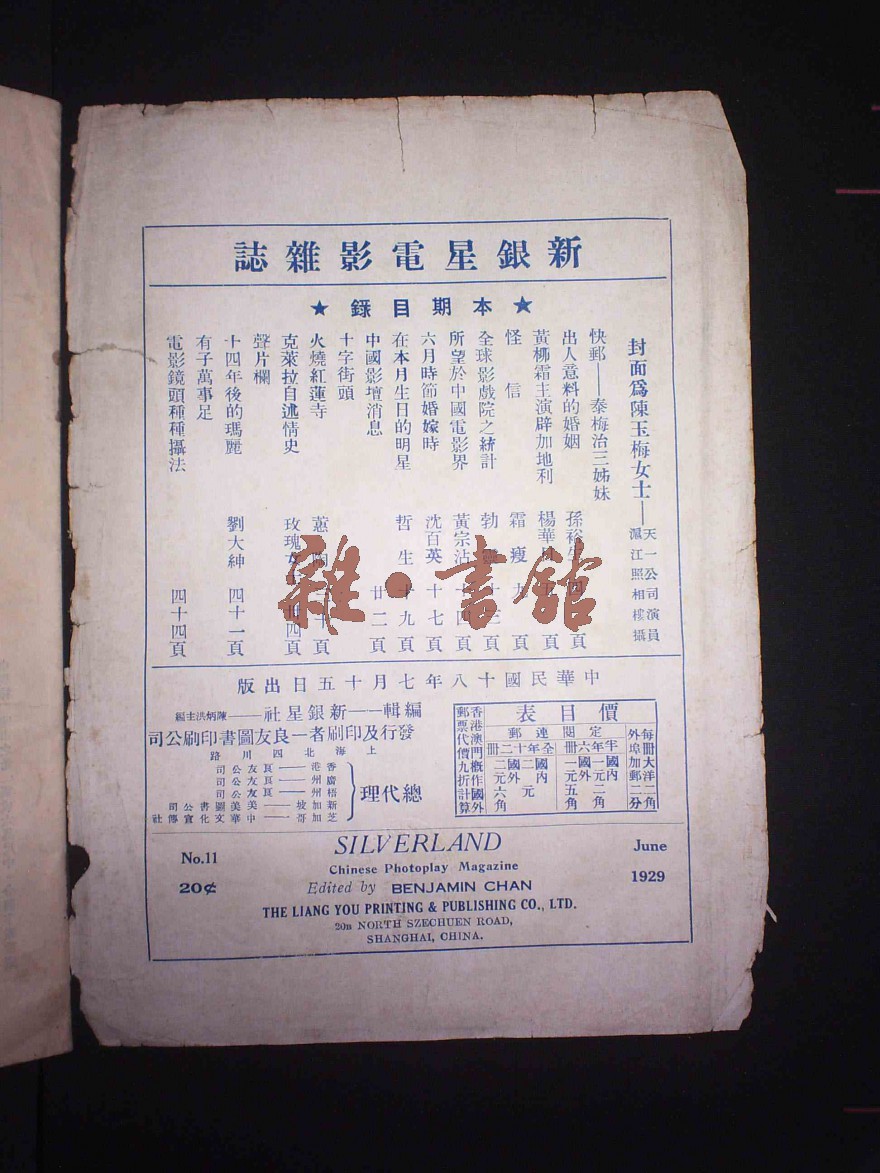 新銀星電影雜誌
★本期目錄★
封面為陳玉梅女士——天一公司演員
滬江照相樓攝
快郵——秦梅治三姊妹
出人意料的婚姻 孫裕 頁
黃柳霜主演辟加地利 楊華 頁
怪信 霜瘦 九頁
全球影戲院之統計 勃 十三頁
所望於中國電影界 黃宗沾 十四頁
六月時節婚嫁時 沈百英 十七頁
在本月生日的明星 哲生 十九頁
中國影壇消息 廿二頁
十字街頭
火燒紅蓮寺 蕙陶 十頁
克萊拉自述情史 玫瑰女 卅四頁
聲片欄
十四年後的瑪麗 劉大紳 四十一頁
有子萬事足
電影鏡頭種種攝法 四十四頁
中華民國十八年七月十五日出版
價目表
每冊大洋二角
外埠加郵二分
定閱連郵
半年六冊
國內一元二角
國外一元五角
全年十二冊
國內二元
國外二元六角
香港澳門概作國外
郵票代價九折計算
編輯——新銀星社——陳炳洪主編
發行及印刷者—良友圖書印刷公司
上海北四川路
總代理
香港——良友公司
廣州——良友公司
梧州——良友公司
新加坡——美美圖書公司
芝加哥——中華文化宣傳社
SILVERLAND
Chinese Photoplay Magazine
No.11
June
20¢
1929
Edited by BENJAMIN CHAN
THE LIANG YOU PRINTING & PUBLISHING CO., LTD.
20B NORTH SZECHUEN ROAD,
SHANGHAI, CHINA.
雜·書館